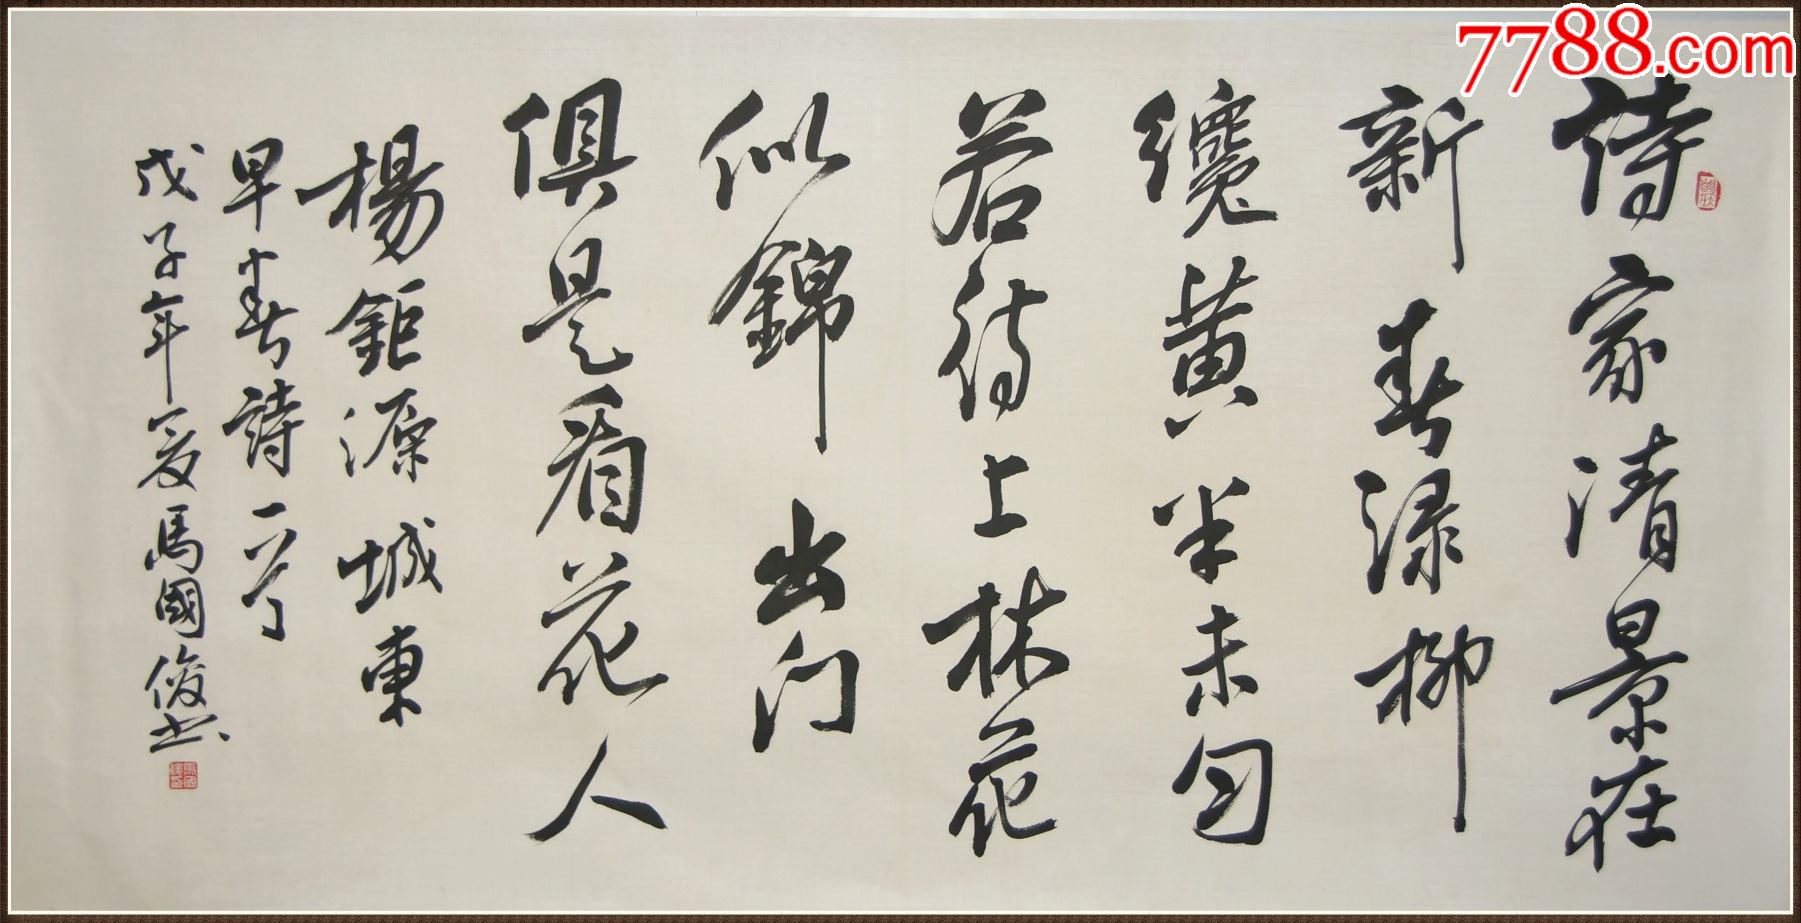 7788.com
詩家清景在
新春渌柳
纔黄半未匀
若待上林花
似錦出门
俱是看花人
楊鉅源城東
早春詩一首
戊子年夏馬國俊书